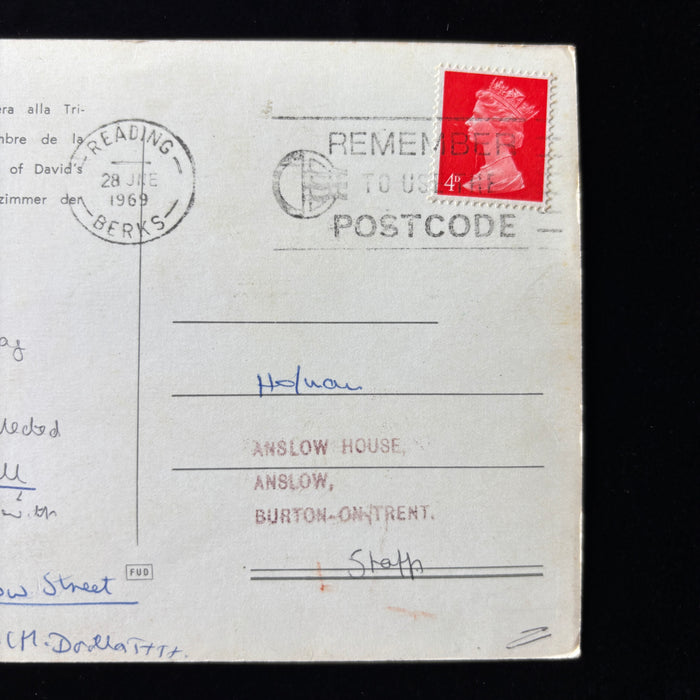 era alla Tri-
mbre de la
of David's
zimmer der
READING
28 JNE
1969
BERKS
REMEMBER
TO USE THE
POSTCODE
4D
Holman
ANSLOW HOUSE,
ANSLOW,
BURTON-ON-TRENT.
Staffs
FUD
Street